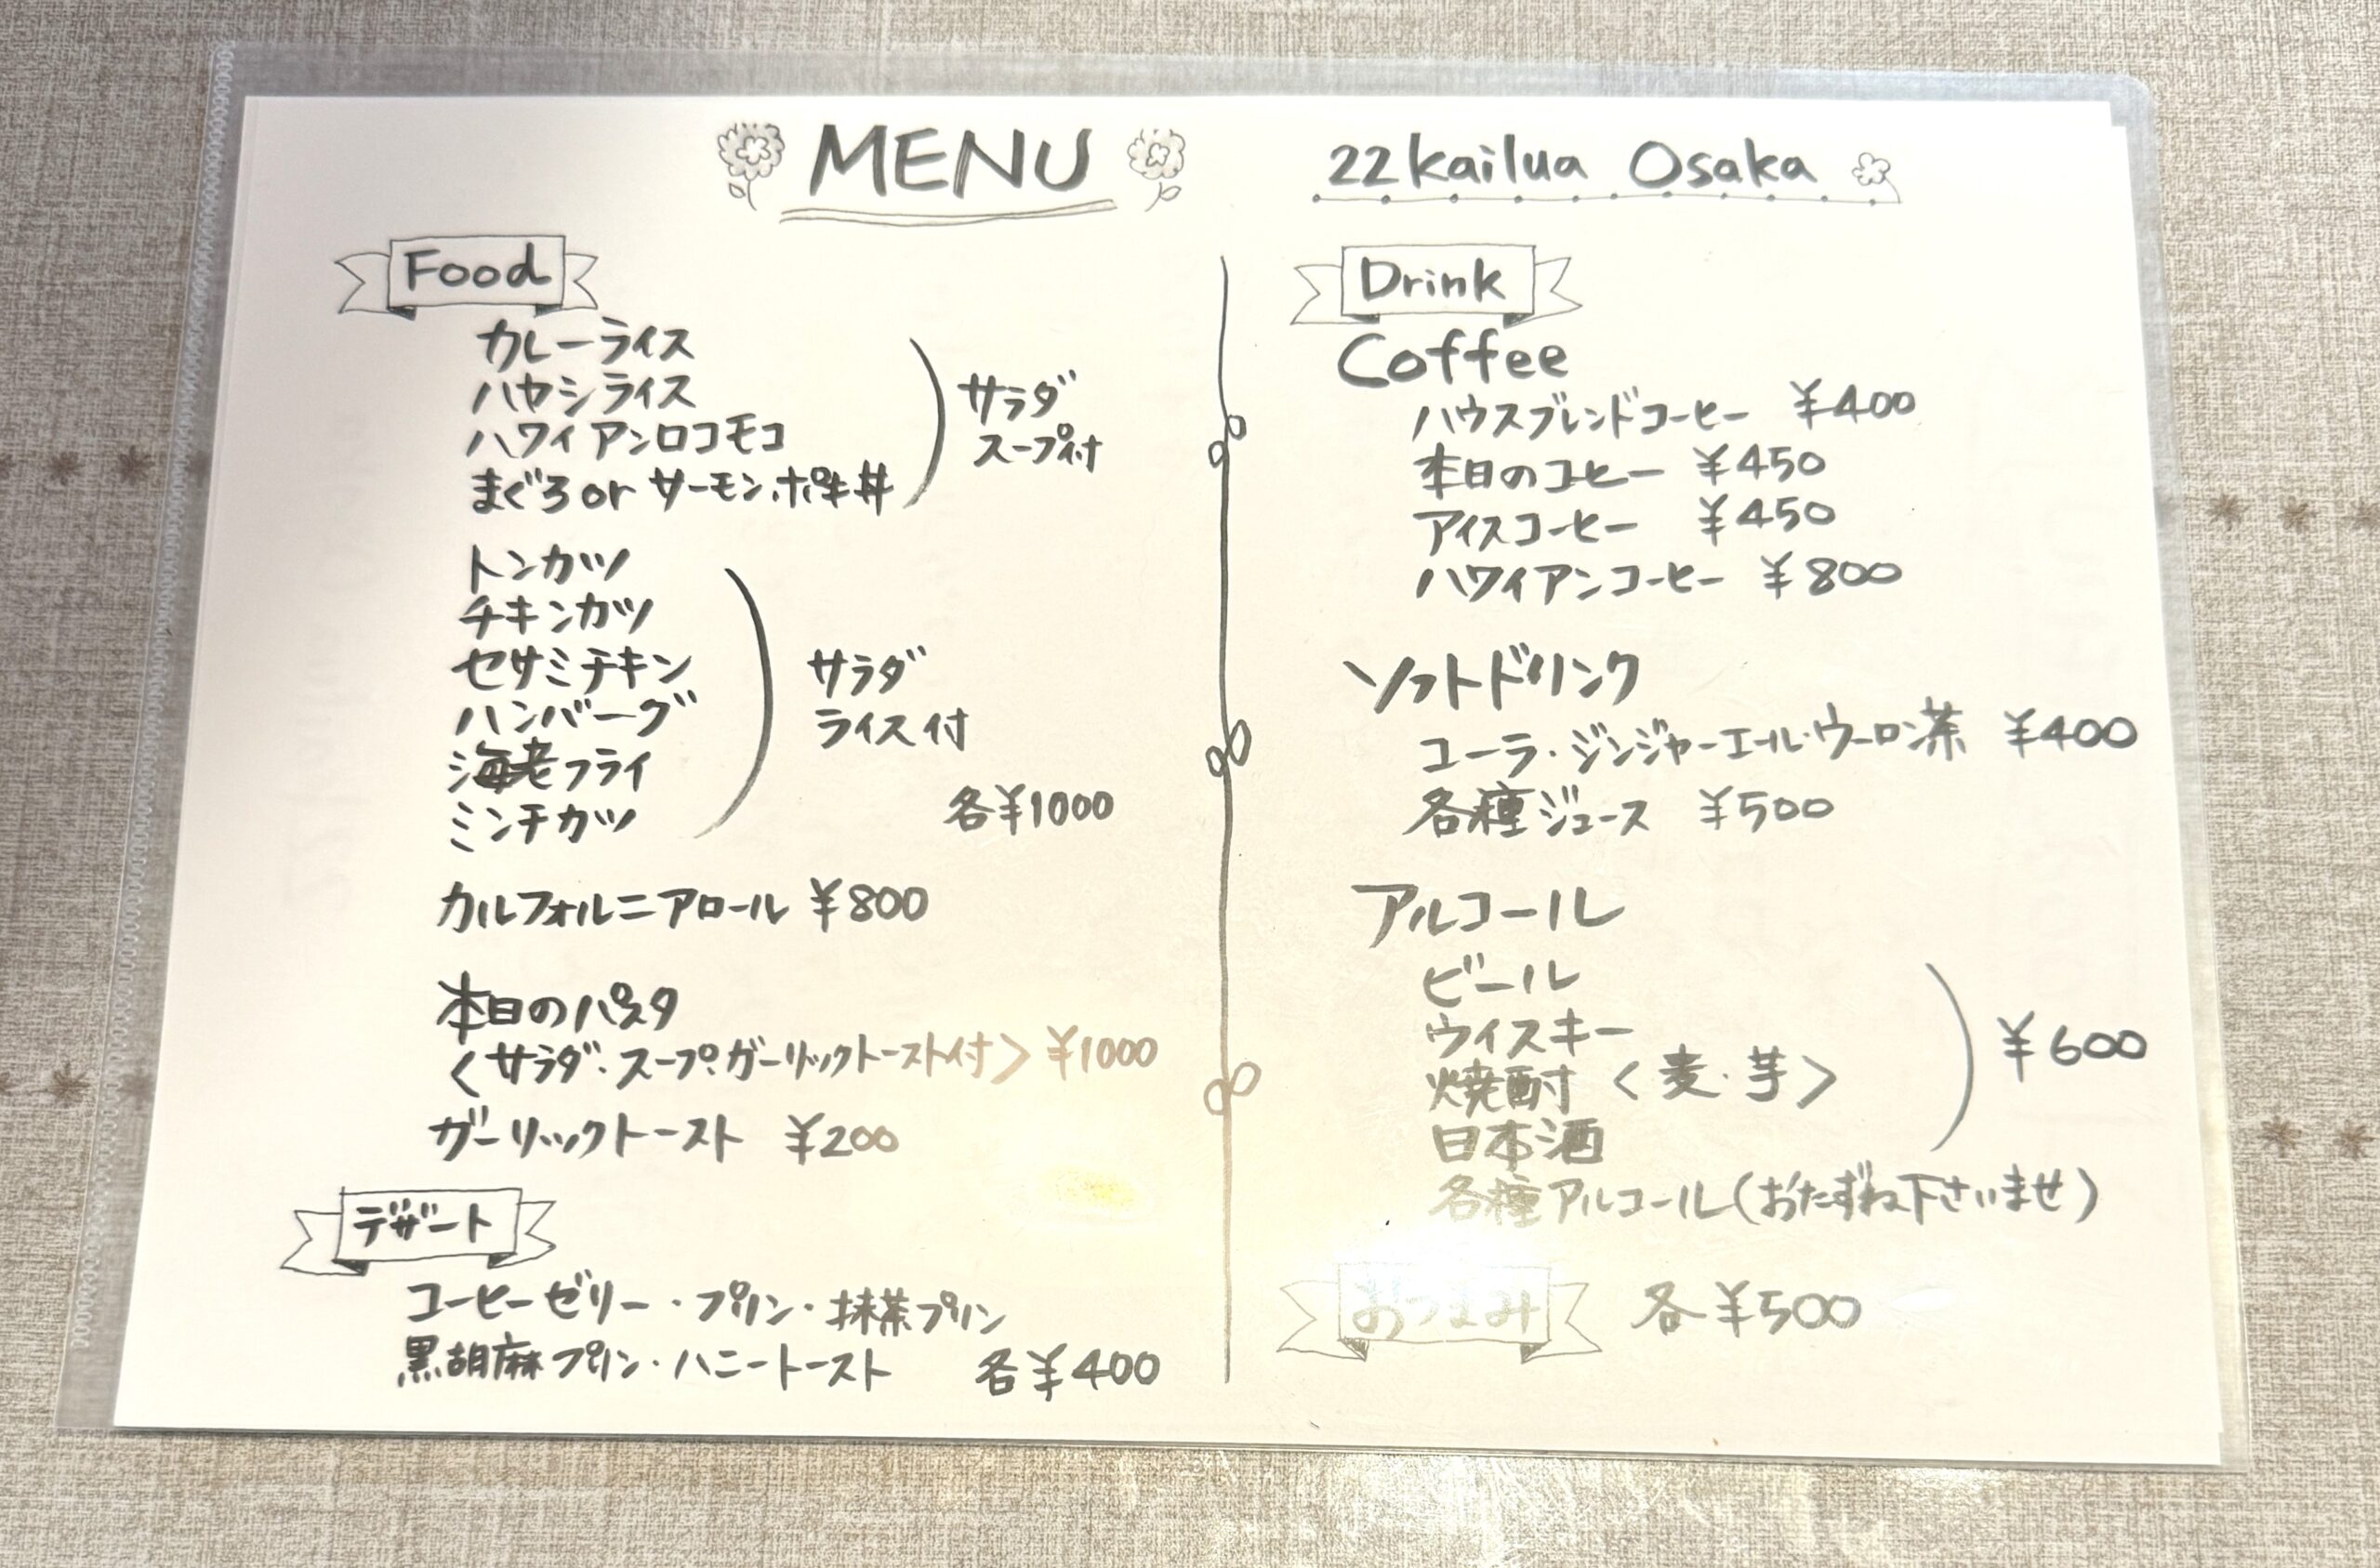 MENU
22kailua Osaka
Food
カレーライス
ハヤシライス
ハワイアンロコモコ
まぐろ or サーモンポキ丼
サラダ
スープ付
トンカツ
チキンカツ
セサミチキン
ハンバーグ
海老フライ
ミンチカツ
サラダ
ライス付
各¥1000
カルフォルニアロール ¥800
本日のパスタ
〈サラダ・スープ・ガーリックトースト付〉 ¥1000
ガーリックトースト ¥200
デザート
コーヒーゼリー・プリン・抹茶プリン
黒胡麻プリン・ハニートースト 各¥400
Drink
Coffee
ハウスブレンドコーヒー ¥400
本日のコヒー ¥450
アイスコーヒー ¥450
ハワイアンコーヒー ¥800
ソフトドリンク
コーラ・ジンジャーエール・ウーロン茶 ¥400
各種ジュース ¥500
アルコール
ビール
ウイスキー
焼酎〈麦・芋〉
日本酒
¥600
各種アルコール(おたずね下さいませ)
おつまみ 各¥500